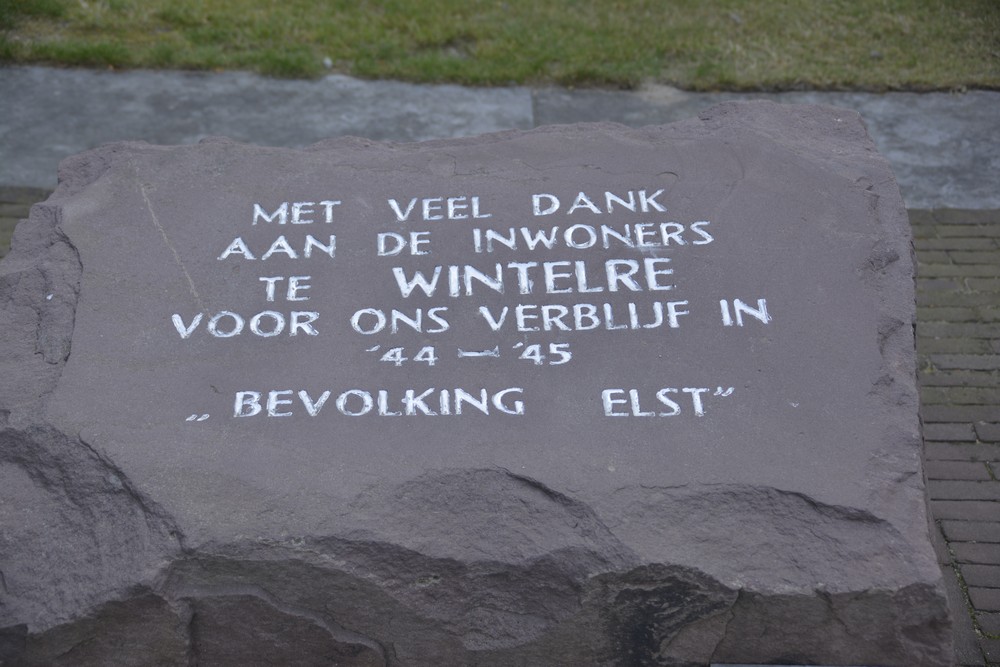 MET VEEL DANK
AAN DE INWONERS
TE WINTELRE
VOOR ONS VERBLIJF IN
'44 - '45
„BEVOLKING ELST”